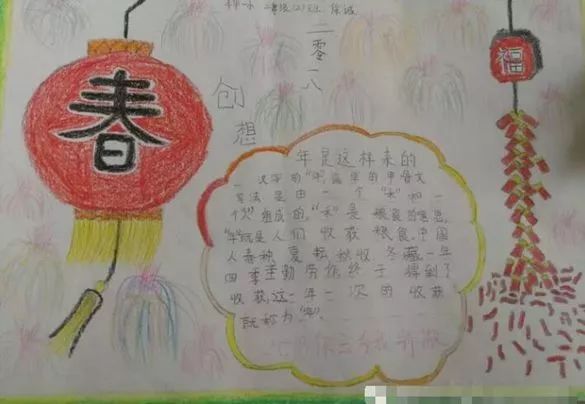 二零一八
创想
春
福
年是这样来的
汉字的"年"最早的甲骨文
写法是由一个"禾"和一
个"人"组成的,"禾"是粮食的意思,
人们收获粮食.中国
人春种夏耘秋收冬藏,一年
四季辛勤劳作终于得到了
收获,这一年一次的收获
就称为"年".